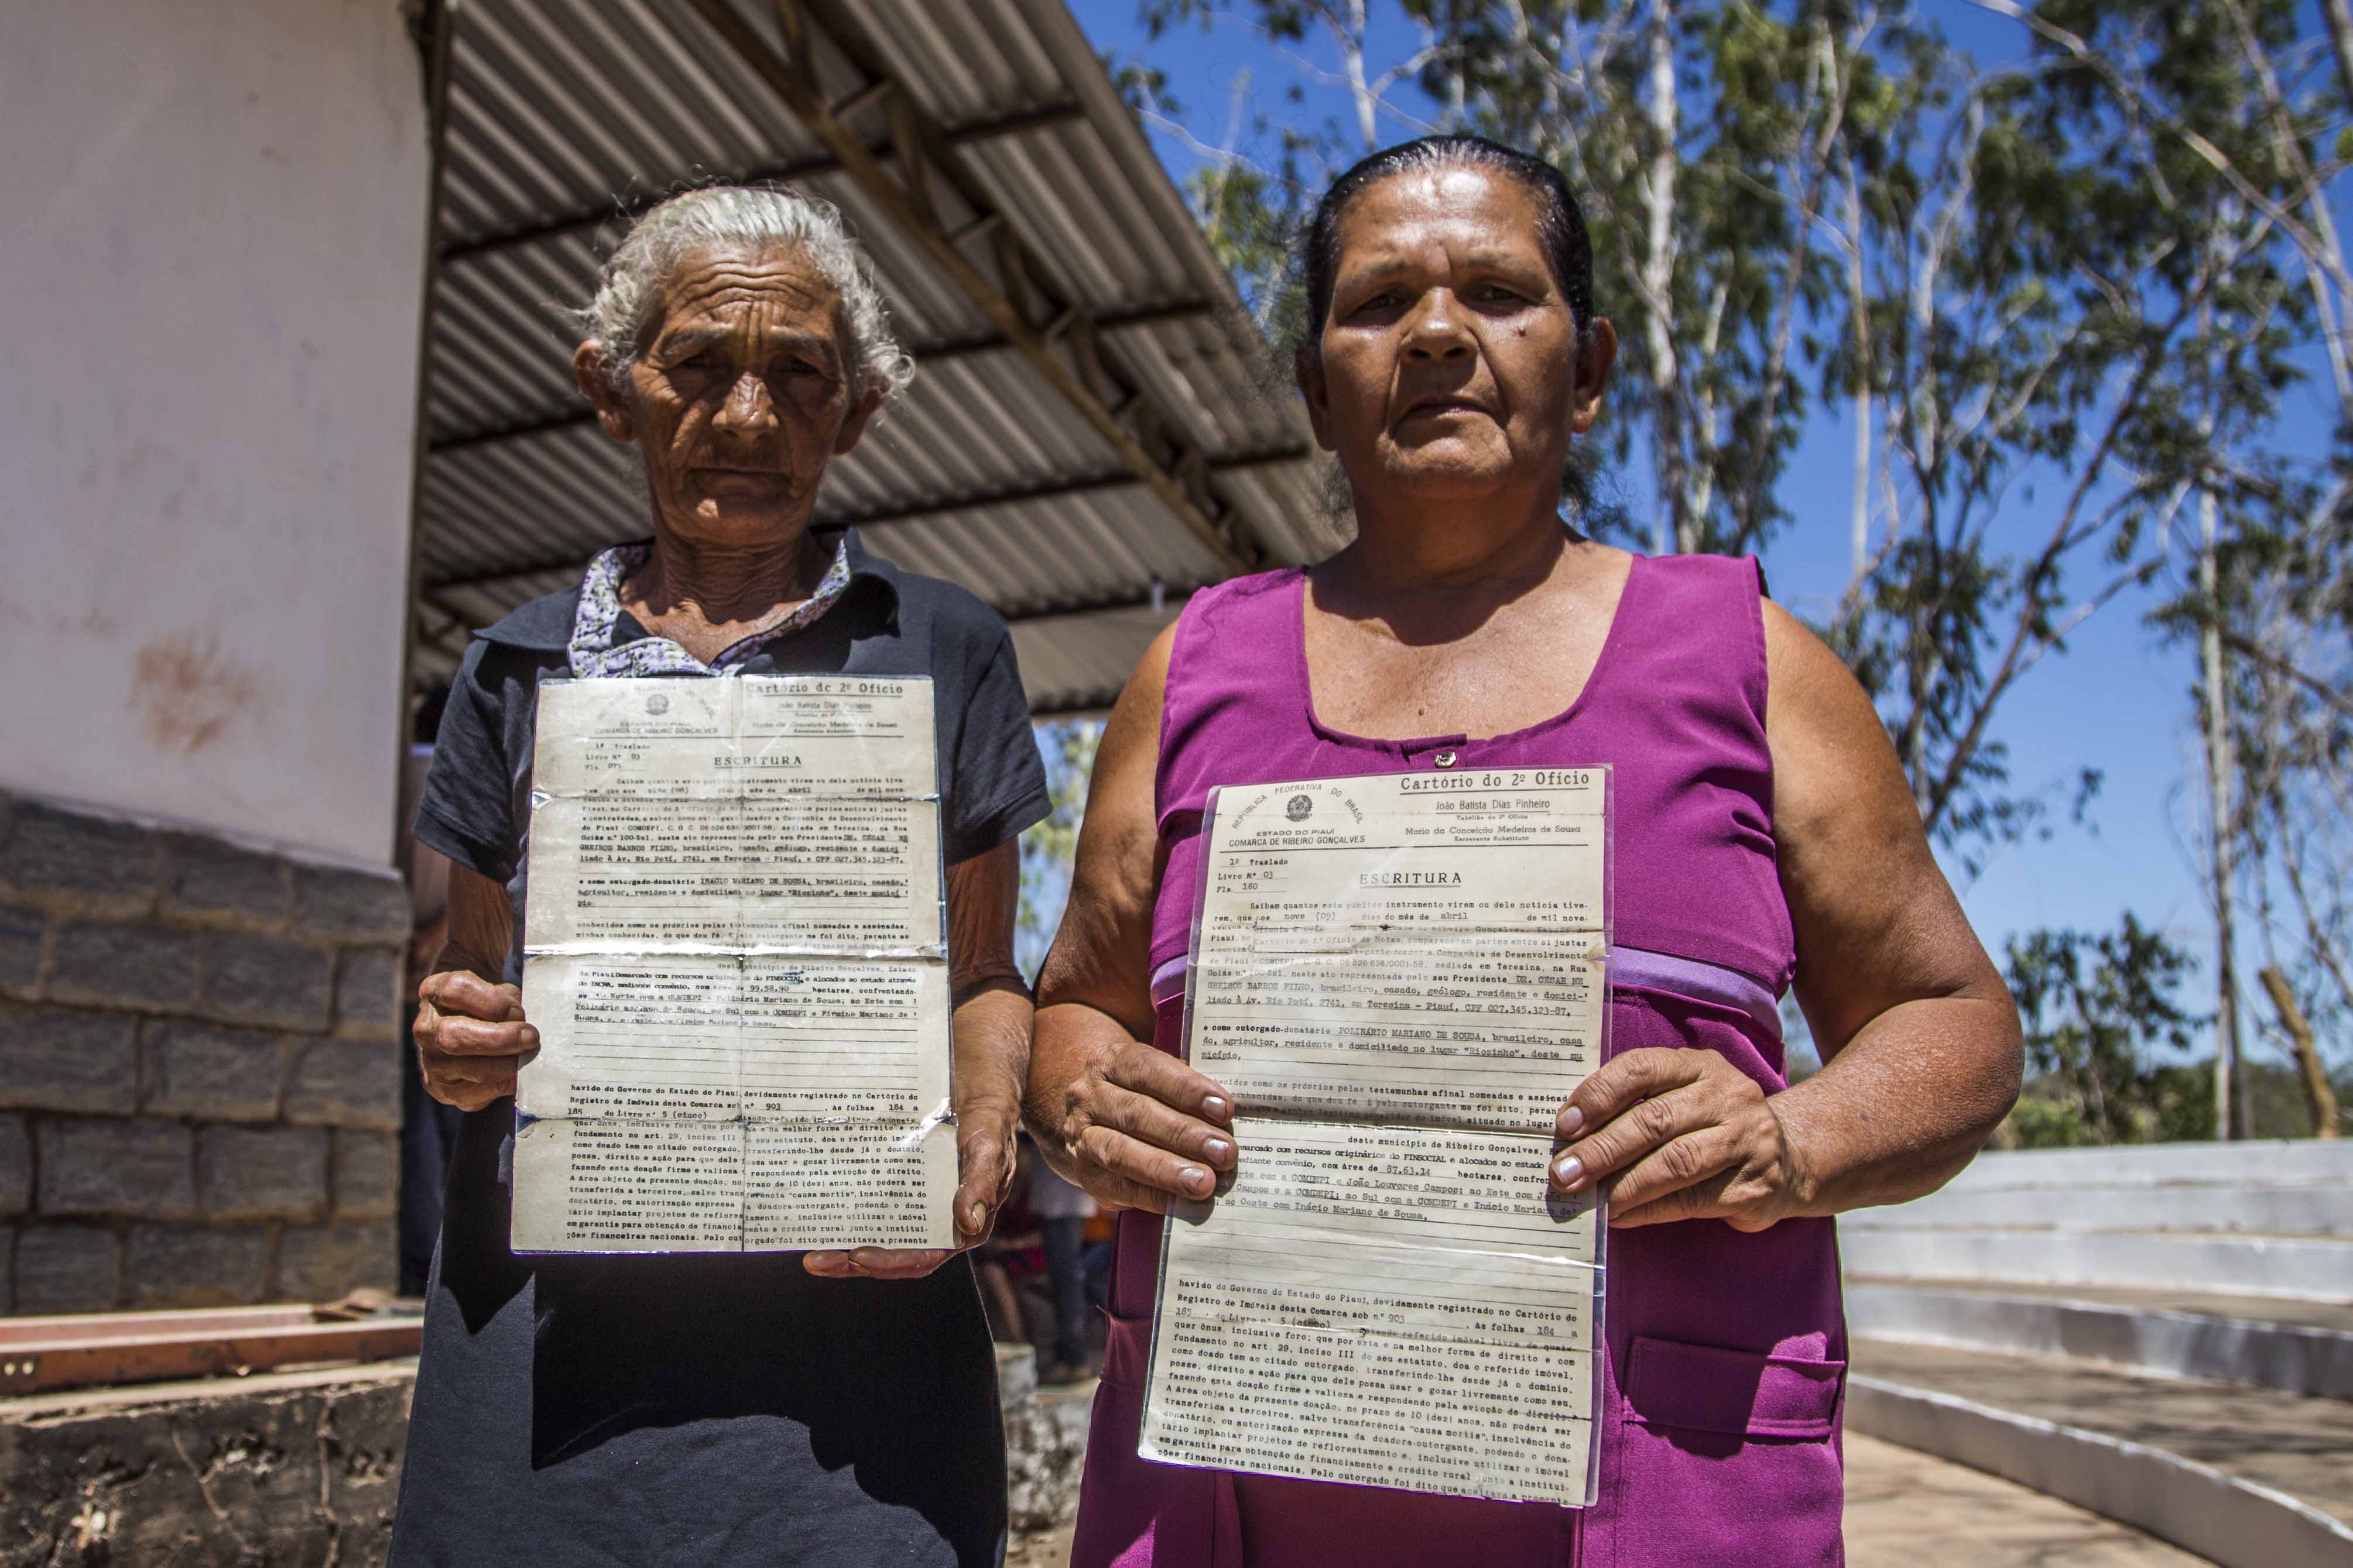 Cartório do 2º Ofício
João Batista Dias Pinheiro
Tabelião do 2º Ofício
Maria da Conceição Medeiros de Sousa
Escrevente Substituto
ESTADO DO PIAUÍ
COMARCA DE RIBEIRO GONÇALVES
1º Traslado
Livro Nº 03
Fls. 075
ESCRITURA
Saibam quantos este público instrumento virem ou dele notícia tive-
rem, que aos oito (08) dias do mês de abril de mil nove-
Piauí, no Cartório do 2º Ofício de Notas, compareceram partes entre si justas
e contratadas, a saber: como outorgante doador a Companhia de Desenvolvimento
do Piauí - COMDEPI, C. G. C. 06 826 636/0001-58, sediada em Teresina, na Rua
Goiás n.º 100-Sul, neste ato representada pelo seu Presidente DR. CÉSAR NE
GREIROS BARROS FILHO, brasileiro, casado, geólogo, residente e domici-
liado à Av. Rio Poti, 2741, em Teresina - Piauí, e CPF 027.345.323-87,
e como outorgado-donatário INÁCIO MARIANO DE SOUSA, brasileiro, casado,
agricultor, residente e domiciliado no lugar "Riozinho", deste municí
pio
conhecidos como os próprios pelas testemunhas afinal nomeadas e assinadas,
minhas conhecidas, do que dou fé. E pelo outorgante me foi dito, perante as
deste município de Ribeiro Gonçalves, Estado
do Piauí. Demarcado com recursos originários do FINSOCIAL, e alocados ao estado através
do INCRA, mediante convênio, com área de 99.58.90 hectares, confrontando-
se ao Norte com a COMDEPI e Polinário Mariano de Sousa; ao Este com
Polinário Mariano de Sousa; ao Sul com a COMDEPI e Firmino Mariano de
Sousa, e Firmino Mariano de Sousa,
havido do Governo do Estado do Piauí, devidamente registrado no Cartório do
Registro de Imóveis desta Comarca sob nº 903, às folhas 184 a
185 do Livro nº 5 (cinco)
quer ônus, inclusive foro; que por esta e na melhor forma de direito e com
fundamento no art. 29, inciso III do seu estatuto, doa o referido imóvel,
como doado tem ao citado outorgado, transferindo-lhe desde já o domínio,
posse, direito e ação para que dele possa usar e gozar livremente como seu,
fazendo esta doação firme e valiosa e respondendo pela evicção de direito.
A Área objeto da presente doação, no prazo de 10 (dez) anos, não poderá ser
transferida a terceiros, salvo transferência "causa mortis", insolvência do
donatário, ou autorização expressa da doadora-outorgante, podendo o dona-
tário implantar projetos de reflorestamento e, inclusive utilizar o imóvel
em garantia para obtenção de financiamento e crédito rural junto a institui-
ções financeiras nacionais. Pelo outorgado foi dito que aceitava a presente
REPÚBLICA FEDERATIVA DO BRASIL
ESTADO DO PIAUÍ
COMARCA DE RIBEIRO GONÇALVES
Cartório do 2º Ofício
João Batista Dias Pinheiro
Tabelião do 2º Ofício
Maria da Conceição Medeiros de Sousa
Escrevente Substituto
1º Traslado
Livro N.º 03
Fls. 160
ESCRITURA
Saibam quantos este público instrumento virem ou dele notícia tive-
rem, que aos nove (09) dias do mês de abril de mil nove-
Piauí, no Cartório do 2º Ofício de Notas, compareceram partes entre si justas
outorgante doador a Companhia de Desenvolvimento
do Piauí - COMDEPI, C. G. C. 06 826 636/0001-58, sediada em Teresina, na Rua
Goiás n.º 100-Sul, neste ato representada pelo seu Presidente DR. CÉSAR NE
GREIROS BARROS FILHO, brasileiro, casado, geólogo, residente e domici-
liado à Av. Rio Poti, 2741, em Teresina - Piauí, CPF 027.345.323-87,
e como outorgado-donatário POLINÁRIO MARIANO DE SOUSA, brasileiro, casa
do, agricultor, residente e domiciliado no lugar "Riozinho", deste mu
nicípio,
conhecidos como os próprios pelas testemunhas afinal nomeadas e assinad
conhecidas, do que dou fé. E pelo outorgante me foi dito, peran
legítimo possuidor do imóvel situado no lugar
deste município de Ribeiro Gonçalves,
marcado com recursos originários do FINSOCIAL e alocados ao estado
mediante convênio, com área de 87.63.14 hectares, confron
orte com a COMDEPI e João Louvores Campos; ao Este com João
Campos e a COMDEPI; ao Sul com a COMDEPI e Inácio Mariano de
; ao Oeste com Inácio Mariano de Sousa,
havido do Governo do Estado do Piauí, devidamente registrado no Cartório do
Registro de Imóveis desta Comarca sob nº 903, às folhas 184 a
185 do Livro nº 5 (cinco) estando referido imóvel livre de quais-
quer ônus, inclusive foro; que por esta e na melhor forma de direito e com
fundamento no art. 29, inciso III do seu estatuto, doa o referido imóvel,
como doado tem ao citado outorgado, transferindo-lhe desde já o domínio,
posse, direito e ação para que dele possa usar e gozar livremente como seu,
fazendo esta doação firme e valiosa e respondendo pela evicção de direito.
A Área objeto da presente doação, no prazo de 10 (dez) anos, não poderá ser
transferida a terceiros, salvo transferência "causa mortis", insolvência do
donatário, ou autorização expressa da doadora-outorgante, podendo o dona-
tário implantar projetos de reflorestamento e, inclusive utilizar o imóvel
em garantia para obtenção de financiamento e crédito rural junto a institui-
ções financeiras nacionais. Pelo outorgado foi dito que aceitava a presente